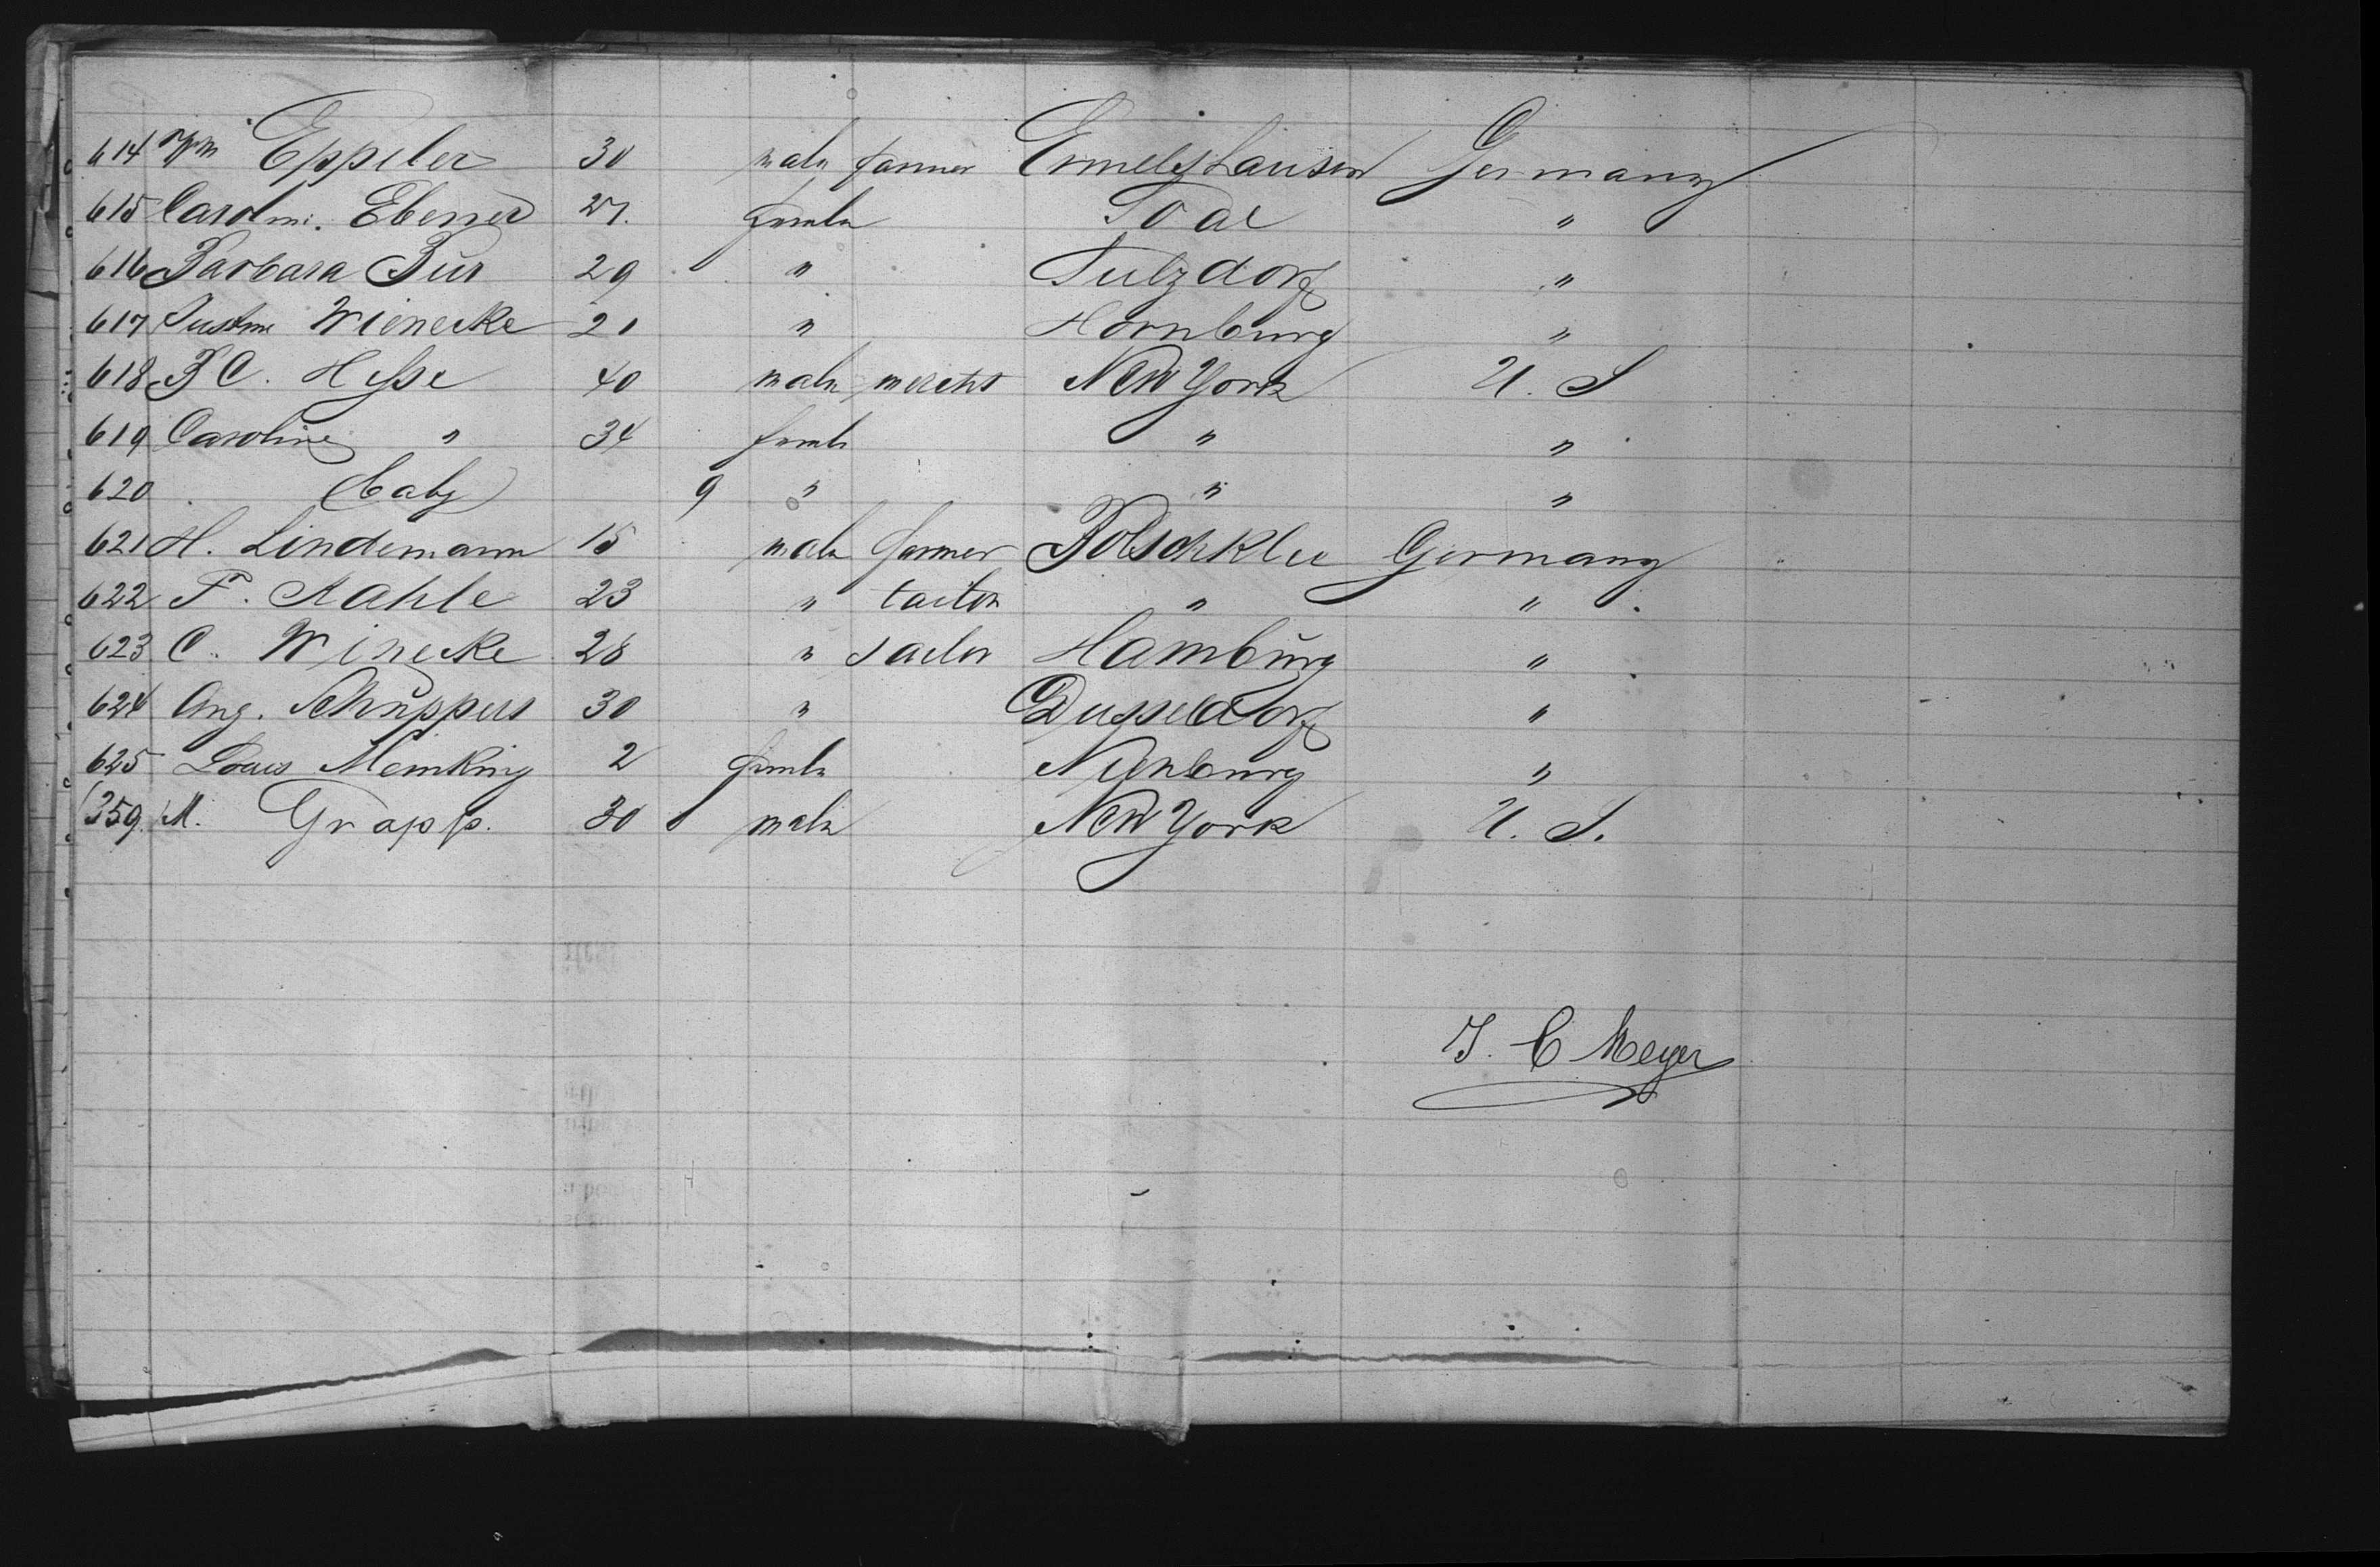 614 Wm Eppeler 30 male farmer Ermelshausen Germany
615 Carolin. Ebener 27. female Tode "
616 Barbara Bür 29 " Sulzdorf "
617 Justine Wienecke 21 " Hornburg "
618 B C. Hesse 40 male mercht New York U. S
619 Caroline " 34 female " "
620 baby 9 " " "
621 H. Lindemann 15 male farmer Germany
622 F. Kahle 23 " tailor " "
623 C. Winecke 28 " sailor Hamburg "
624 Aug. Schüppers 30 " Dusseldorf "
625 Louis Meinking 2 female Nienburg "
359. M. Grapp. 30 male New York U. S.
J. C Meyer